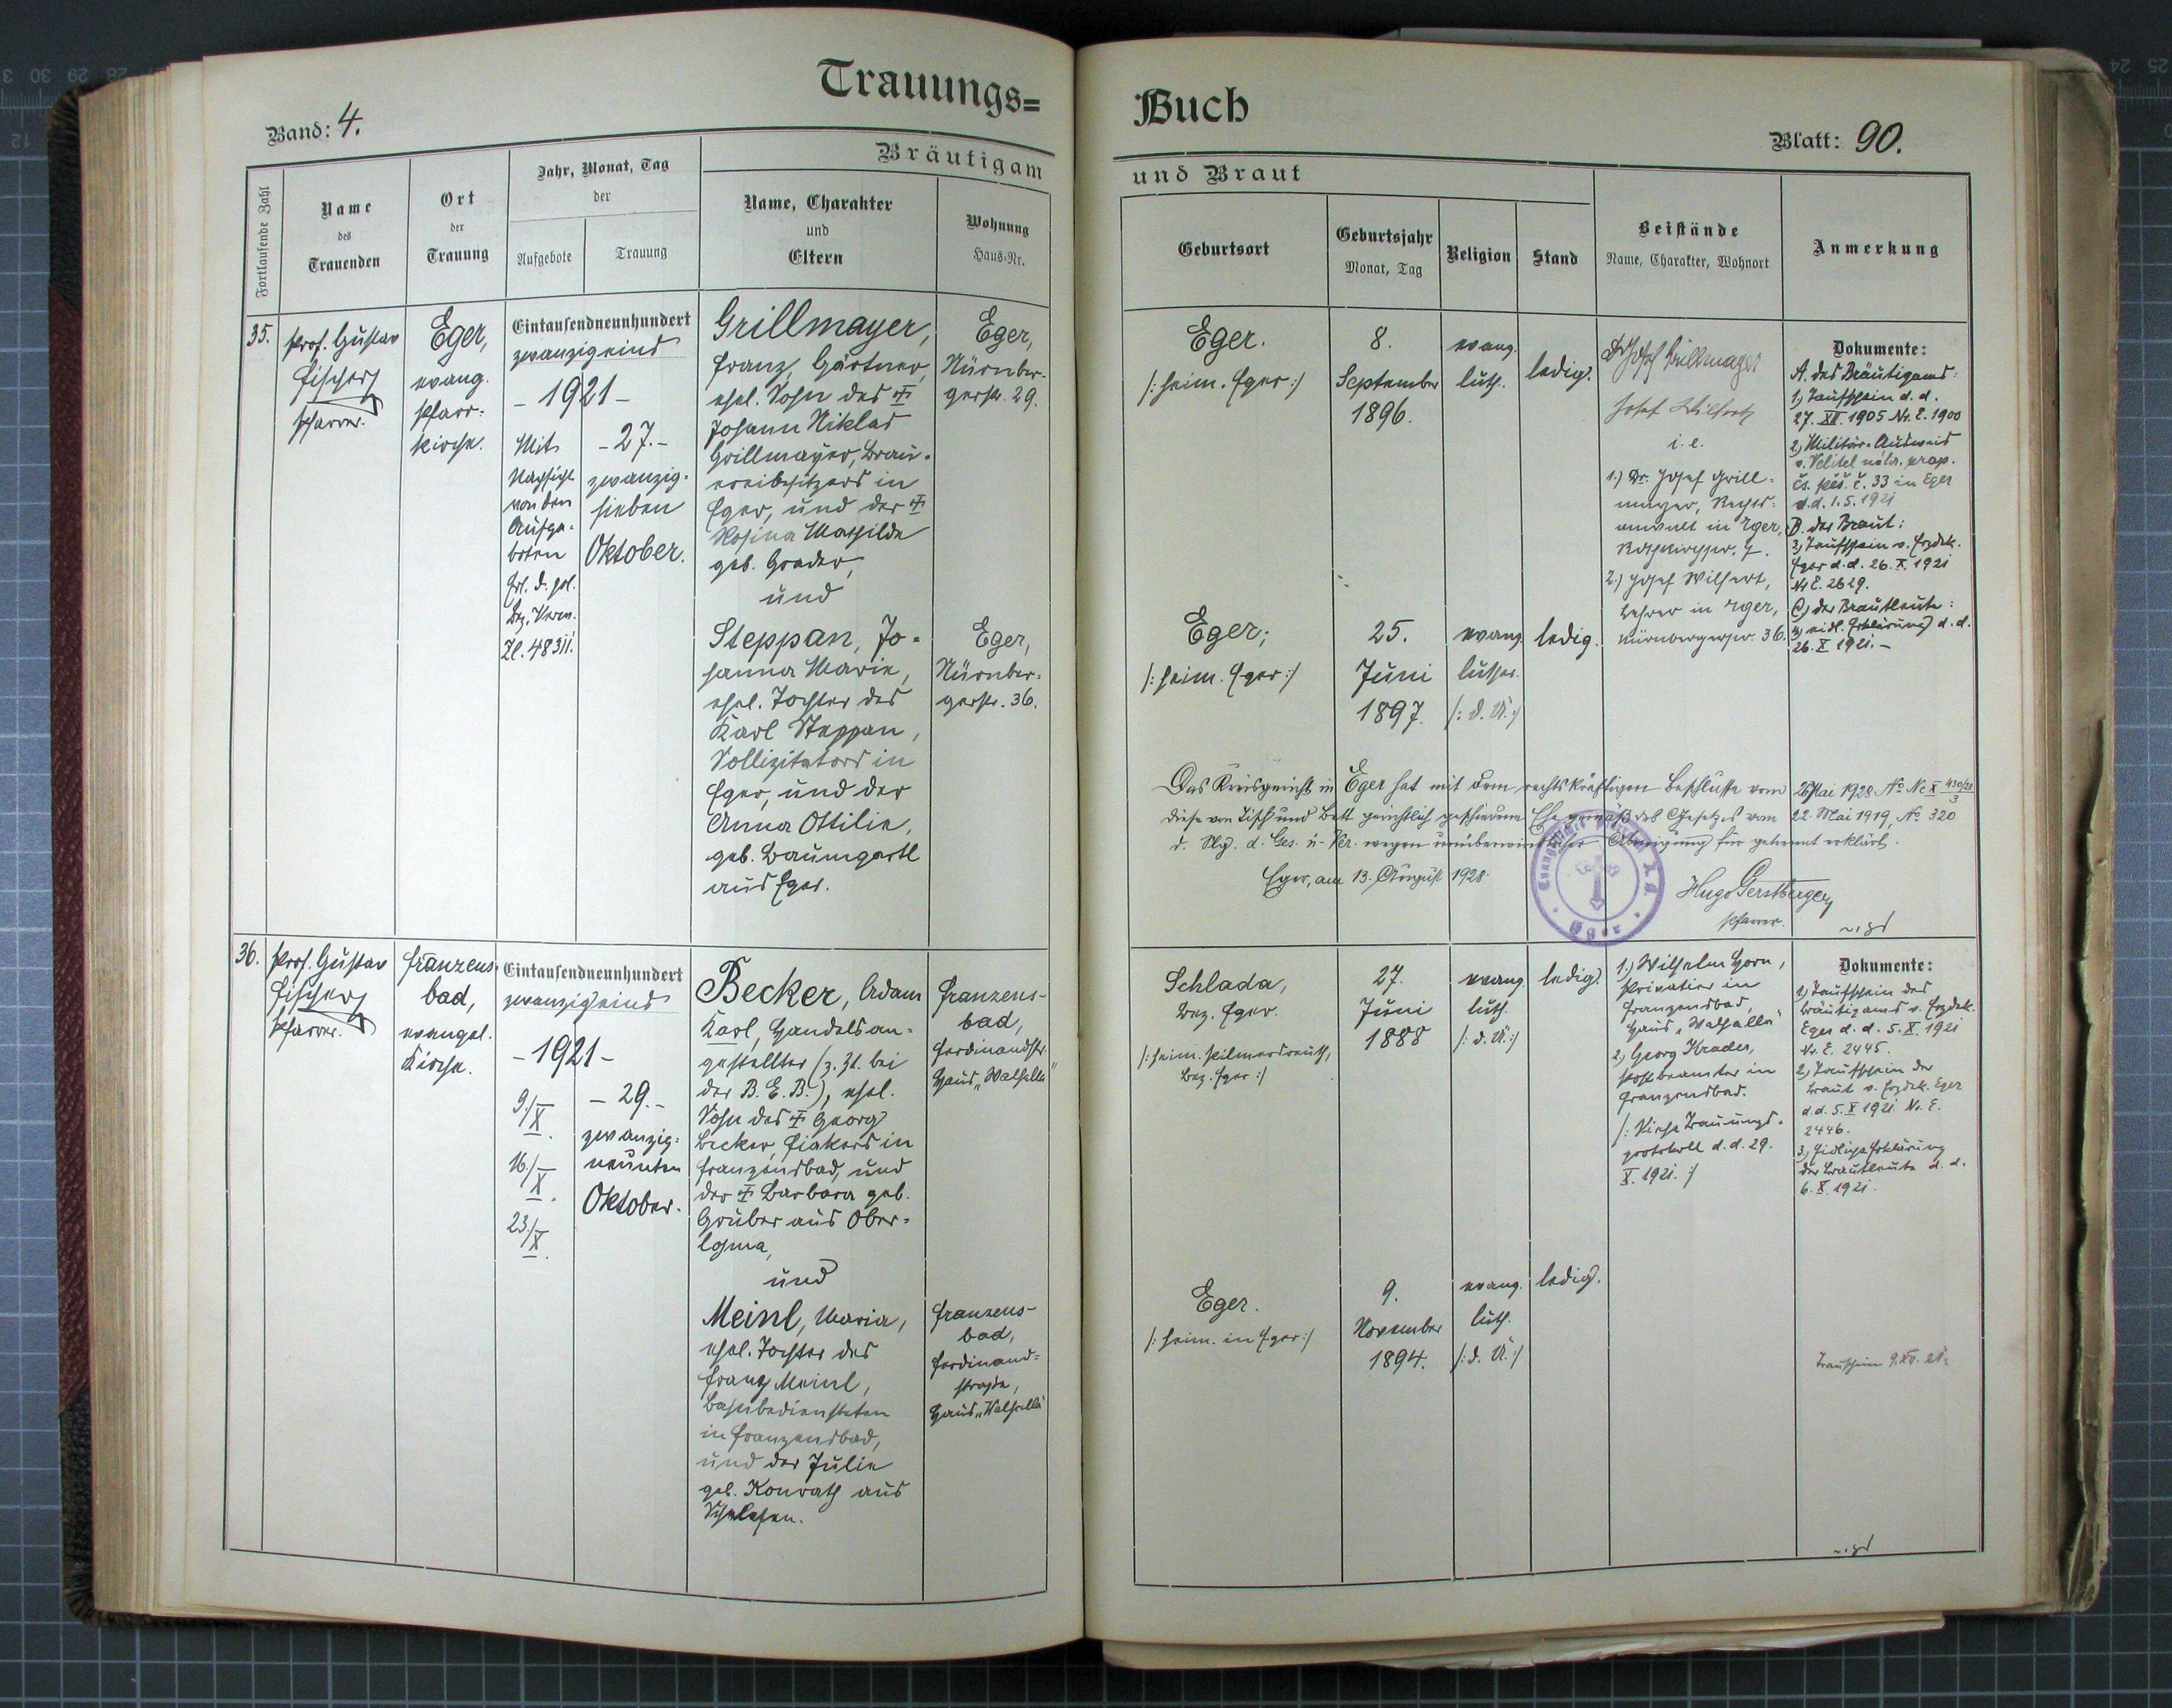 Trauungs=
Buch
Band: 4.
Blatt: 90.
Fortlaufende Zahl
Name
des
Trauenden
Ort
der
Trauung
Jahr, Monat, Tag
der
Aufgebote
Trauung
Bräutigam
und Braut
Name, Charakter
und
Eltern
Wohnung
Haus-Nr.
Geburtsort
Geburtsjahr
Monat, Tag
Religion
Stand
Beistände
Name, Charakter, Wohnort
Anmerkung
35.
Prof. Gustav
Fischer
Pfarrer.
Eger,
evang.
Pfarr-
kirche.
Eintausendneunhundert
zwanzigeins
- 1921 -
Mit
Nachsicht
von den
Aufge-
boten
Erl. d. pol.
Bez. Verw.
Zl. 48311.
- 27. -
zwanzig-
sieben
Oktober.
Grillmayer,
Franz, Gärtner,
ehel. Sohn des ✝
Johann Niklas
Grillmayer, Brau-
ereibesitzers in
Eger, und der ✝
Rosina Mathilde
geb. Grader,
und
Steppan, Jo-
hanna Marie,
ehel. Tochter des
Karl Steppan,
Sollizitators in
Eger, und der
Anna Ottilie,
geb. Baumgartl
aus Eger.
Eger,
Nürnber-
gerstr. 29.
Eger,
Nürnber-
gerstr. 36.
Eger.
/: heim. Eger :/
8.
September
1896.
evang.
luth.
ledig.
Eger;
/: heim. Eger :/
25.
Juni
1897.
evang.
luther.
/: d. Ü. :/
ledig.
Dr Josef Grillmayer
Josef Wilfert
i. e.
1.) Dr. Josef Grill-
mayer, Rechts-
anwalt in Eger,
2.) Josef Wilfert,
Lehrer in Eger,
Nürnbergerstr. 36.
Dokumente:
A. des Bräutigams:
1.) Taufschein d. d.
27. XII. 1905 Nr. E. 1900
2.) Militär-Ausweis
v. Velitel náhr. prap.
čs. pěš. č. 33 in Eger
d. d. 1. 5. 1921
B. der Braut:
3.) Taufschein v. Erzdek.
Eger d. d. 26. X. 1921
Nr E. 2629.
C.) der Brautleute:
4.) eidl. Erklärung d. d.
26. X 1921. -
Das Kreisgericht in Eger hat mit dem rechtskräftigen Beschlusse vom 26 Mai 1928 No Nc X 430/28 3
diese von Tisch und Bett gerichtlich geschiedene Ehe gemäß des Gesetzes vom 22. Mai 1919, No 320
d. Slg. d. Ges. u. Ver. wegen unüberwindlicher Abneigung für getrennt erklärt.
Eger, am 13. August 1928.
Hugo Gerstberger
Pfarrer.
36.
Prof. Gustav
Fischer
Pfarrer.
Franzens-
bad,
evangel.
Kirche.
Eintausendneunhundert
zwanzigeins
- 1921 -
9./X.
16./X.
23./X.
- 29. -
zwanzig-
neunten
Oktober.
Becker, Adam
Karl, Handelsan-
gestellter (z. Zt. bei
der B. E. B.), ehel.
Sohn des ✝ Georg
Becker, Fiakers in
Franzensbad, und
der ✝ Barbara geb.
Gruber aus Ober-
lohma,
und
Meinl, Maria,
ehel. Tochter des
Franz Meinl,
Bahnbediensteten
in Franzensbad,
und der Julie
geb. Konrath aus
Franzens-
bad,
Ferdinandstr.
Haus „Walhalla"
Franzens-
bad,
Ferdinand-
straße,
Haus „Walhalla"
Schlada,
Bez. Eger.
/: heim. Pilmersreuth,
Bez. Eger :/
27.
Juni
1888
evang.
luth.
/: d. Ü. :/
ledig.
Eger.
/: heim. in Eger :/
9.
November
1894.
evang.
luth.
/: d. Ü. :/
ledig.
1.) Wilhelm Horn,
Privatier in
Franzensbad,
Haus „Walhalla"
2.) Georg Krader,
Postbeamter in
Franzensbad.
/: Siehe Trauungs-
protokoll d. d. 29.
X. 1921. :/
Dokumente:
1.) Taufschein des
Bräutigams v. Erzdek.
Eger d. d. 5. X. 1921
Nr. E. 2445.
2.) Taufschein der
Braut v. Erzdek. Eger
d. d. 5. X 1921. Nr. E.
2446.
3.) Eidliche Erklärung
der Brautleute d. d.
6. X. 1921.